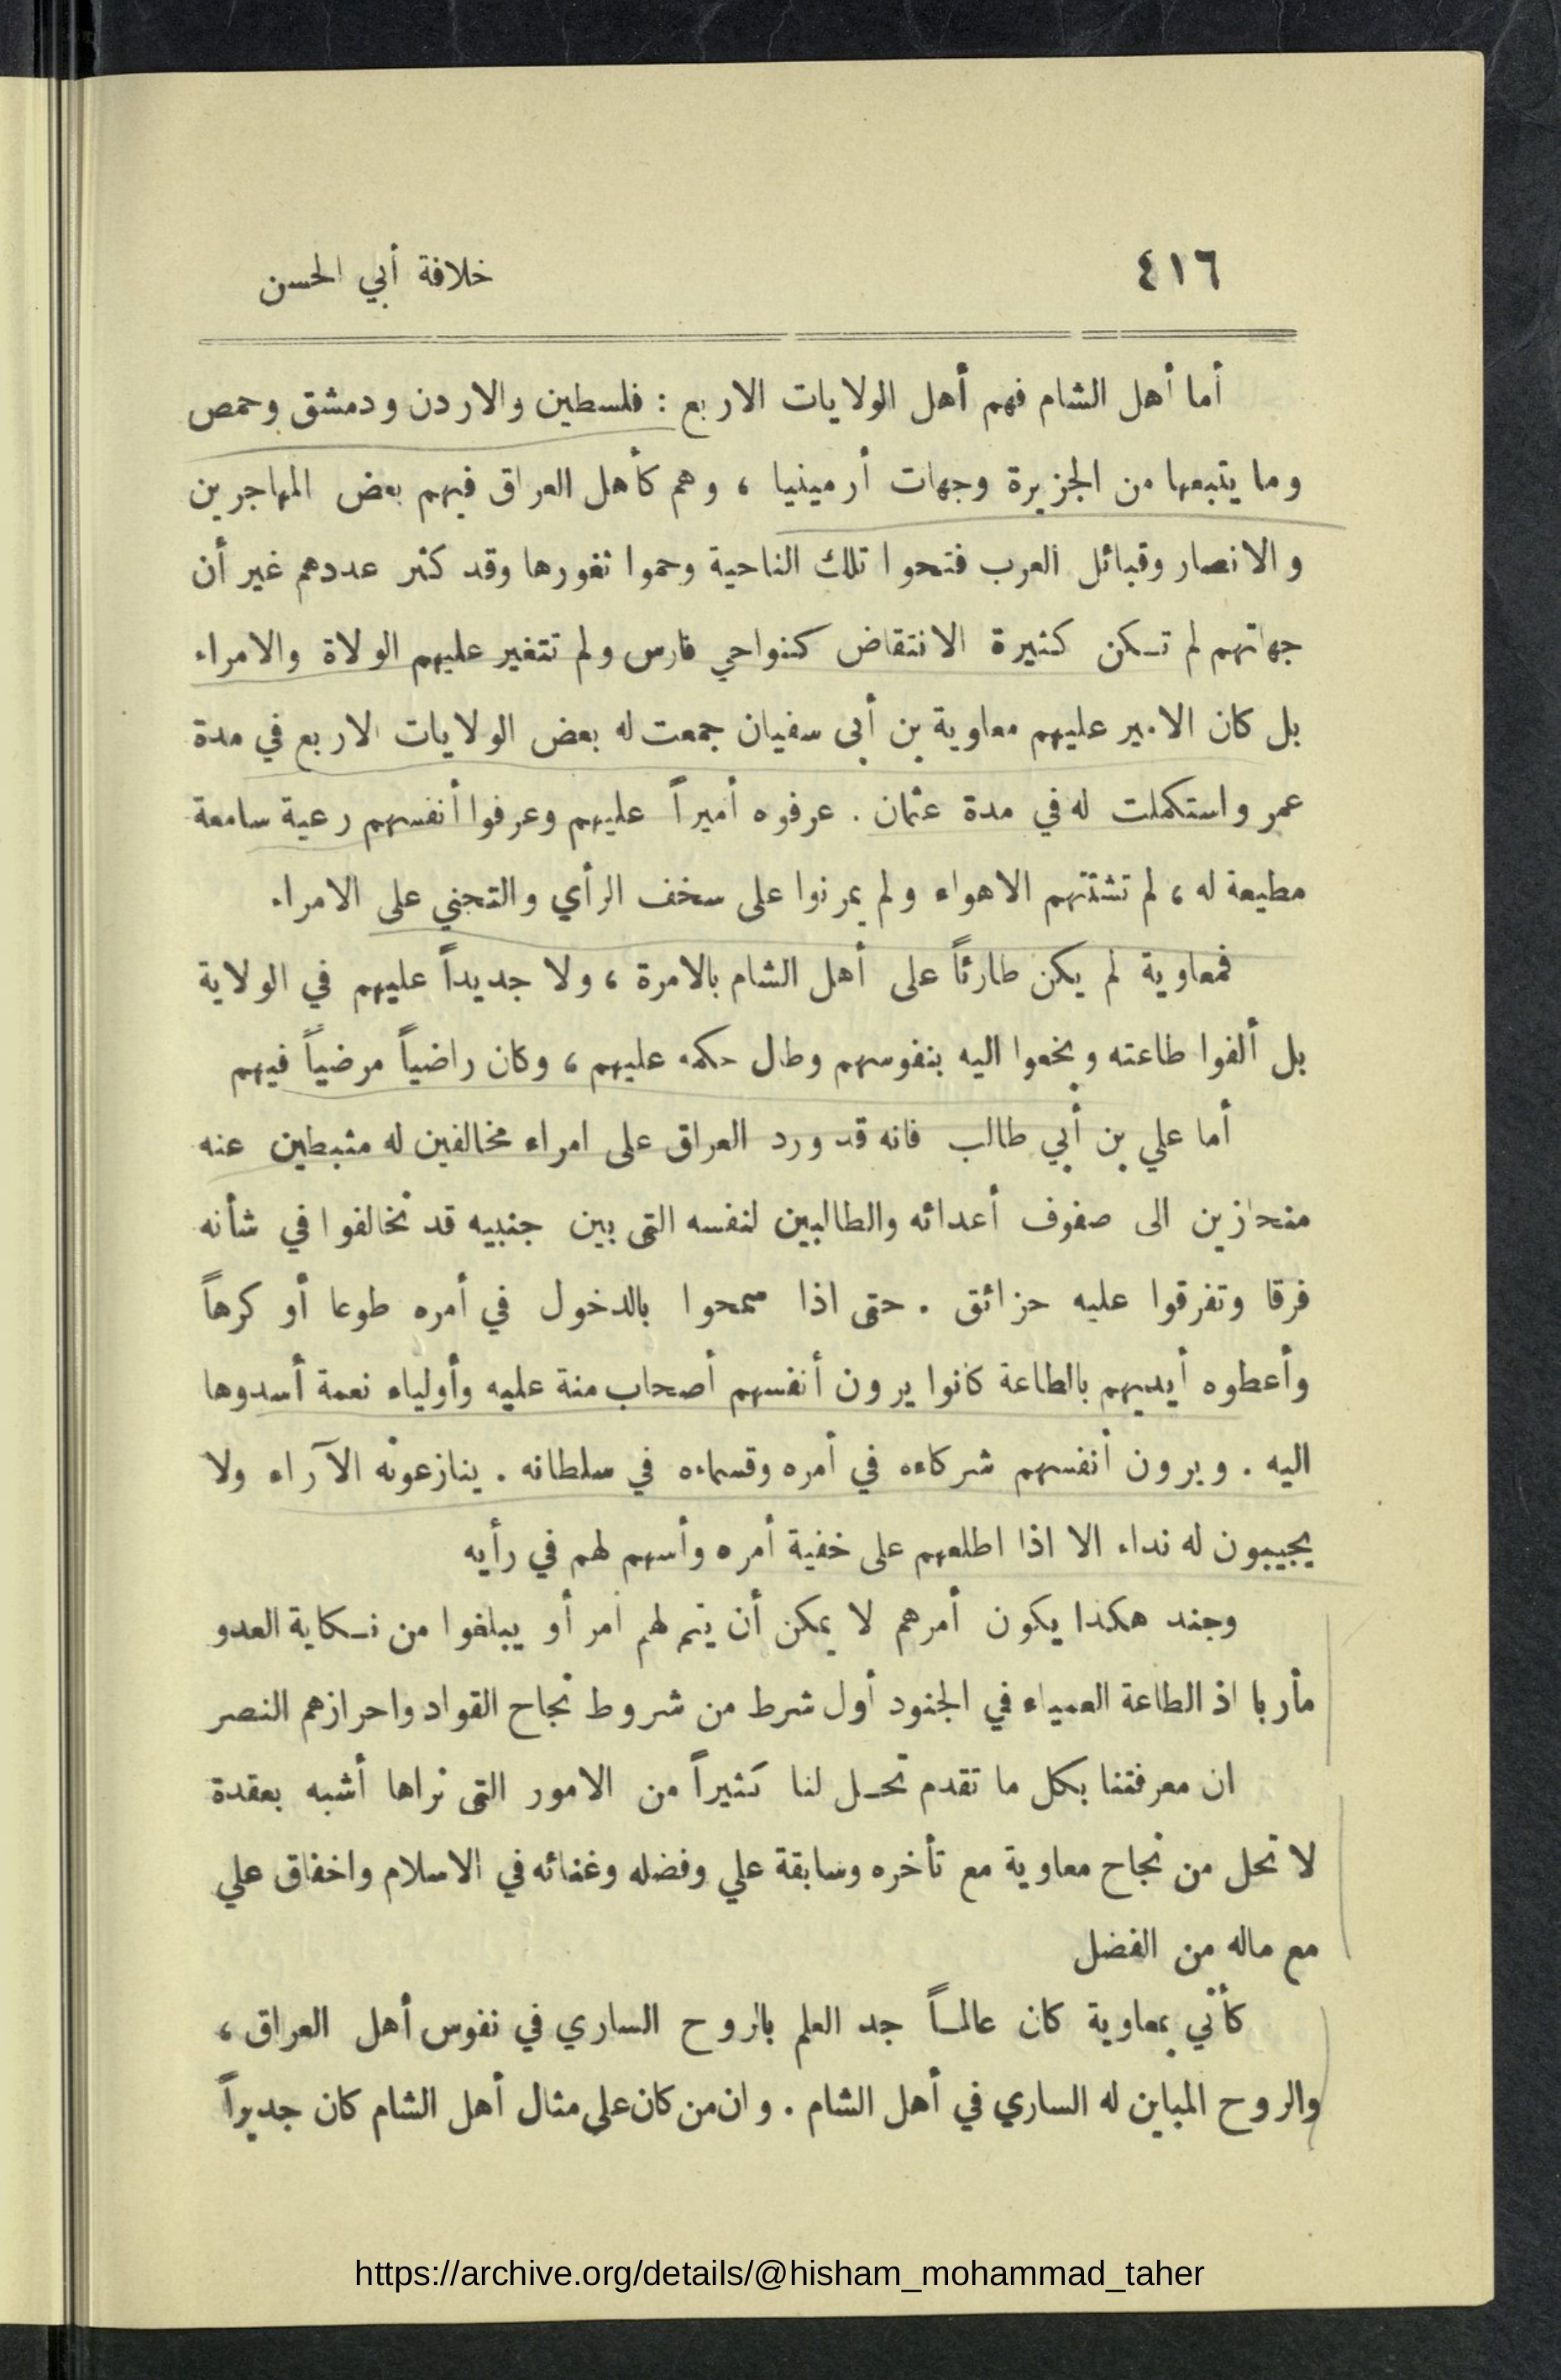 ٤١٦ خلافة أبي الحسن
أما أهل الشام فهم أهل الولايات الاربع : فلسطين والاردن ودمشق وحمص
وما يتبعها من الجزيرة وجهات أرمينيا ، وهم كأهل العراق فيهم بعض المهاجرين
والانصار وقبائل العرب فتحوا تلك الناحية وحموا ثغورها وقد كثر عددهم غير أن
جهاتهم لم تكن كثيرة الانتقاض كنواحي فارس ولم تتغير عليهم الولاة والامراء
بل كان الامير عليهم معاوية بن أبى سفيان جمعت له بعض الولايات الاربع في مدة
عمر واستكملت له في مدة عثمان . عرفوه أميراً عليهم وعرفوا أنفسهم رعية سامعة
مطيعة له ، لم تشتتهم الاهواء ولم يمرنوا على سخف الرأي والتجني على الامراء
فمعاوية لم يكن طارئاً على أهل الشام بالامرة ، ولا جديداً عليهم في الولاية
بل ألفوا طاعته وبخعوا اليه بنفوسهم وطال حكمه عليهم ، وكان راضياً مرضياً فيهم
أما علي بن أبي طالب فانه قد ورد العراق على امراء مخالفين له مثبطين عنه
منحازين الى صفوف أعدائه والطالبين لنفسه التى بين جنبيه قد تخالفوا في شأنه
فرقا وتفرقوا عليه حزائق . حتى اذا سمحوا بالدخول في أمره طوعا أو كرهاً
وأعطوه أيديهم بالطاعة كانوا يرون أنفسهم أصحاب منة عليه وأولياء نعمة أسدوها
اليه . ويرون أنفسهم شركاءه في أمره وقسماءه في سلطانه . ينازعونه الآراء ولا
يجيبون له نداء الا اذا اطلعهم على خفية أمره وأسهم لهم في رأيه
وجند هكذا يكون أمرهم لا يمكن أن يتم لهم أمر أو يبلغوا من نكاية العدو
مأربا اذ الطاعة العمياء في الجنود أول شرط من شروط نجاح القواد واحرازهم النصر
ان معرفتنا بكل ما تقدم تحل لنا كثيراً من الامور التى نراها أشبه بعقدة
لا تحل من نجاح معاوية مع تأخره وسابقة علي وفضله وغنائه في الاسلام واخفاق علي
مع ماله من الفضل
كأني بمعاوية كان عالمـاً جد العلم بالروح الساري في نفوس أهل العراق ،
والروح المباين له الساري في أهل الشام . وان من كان على مثال أهل الشام كان جديراً
https://archive.org/details/@hisham_mohammad_taher